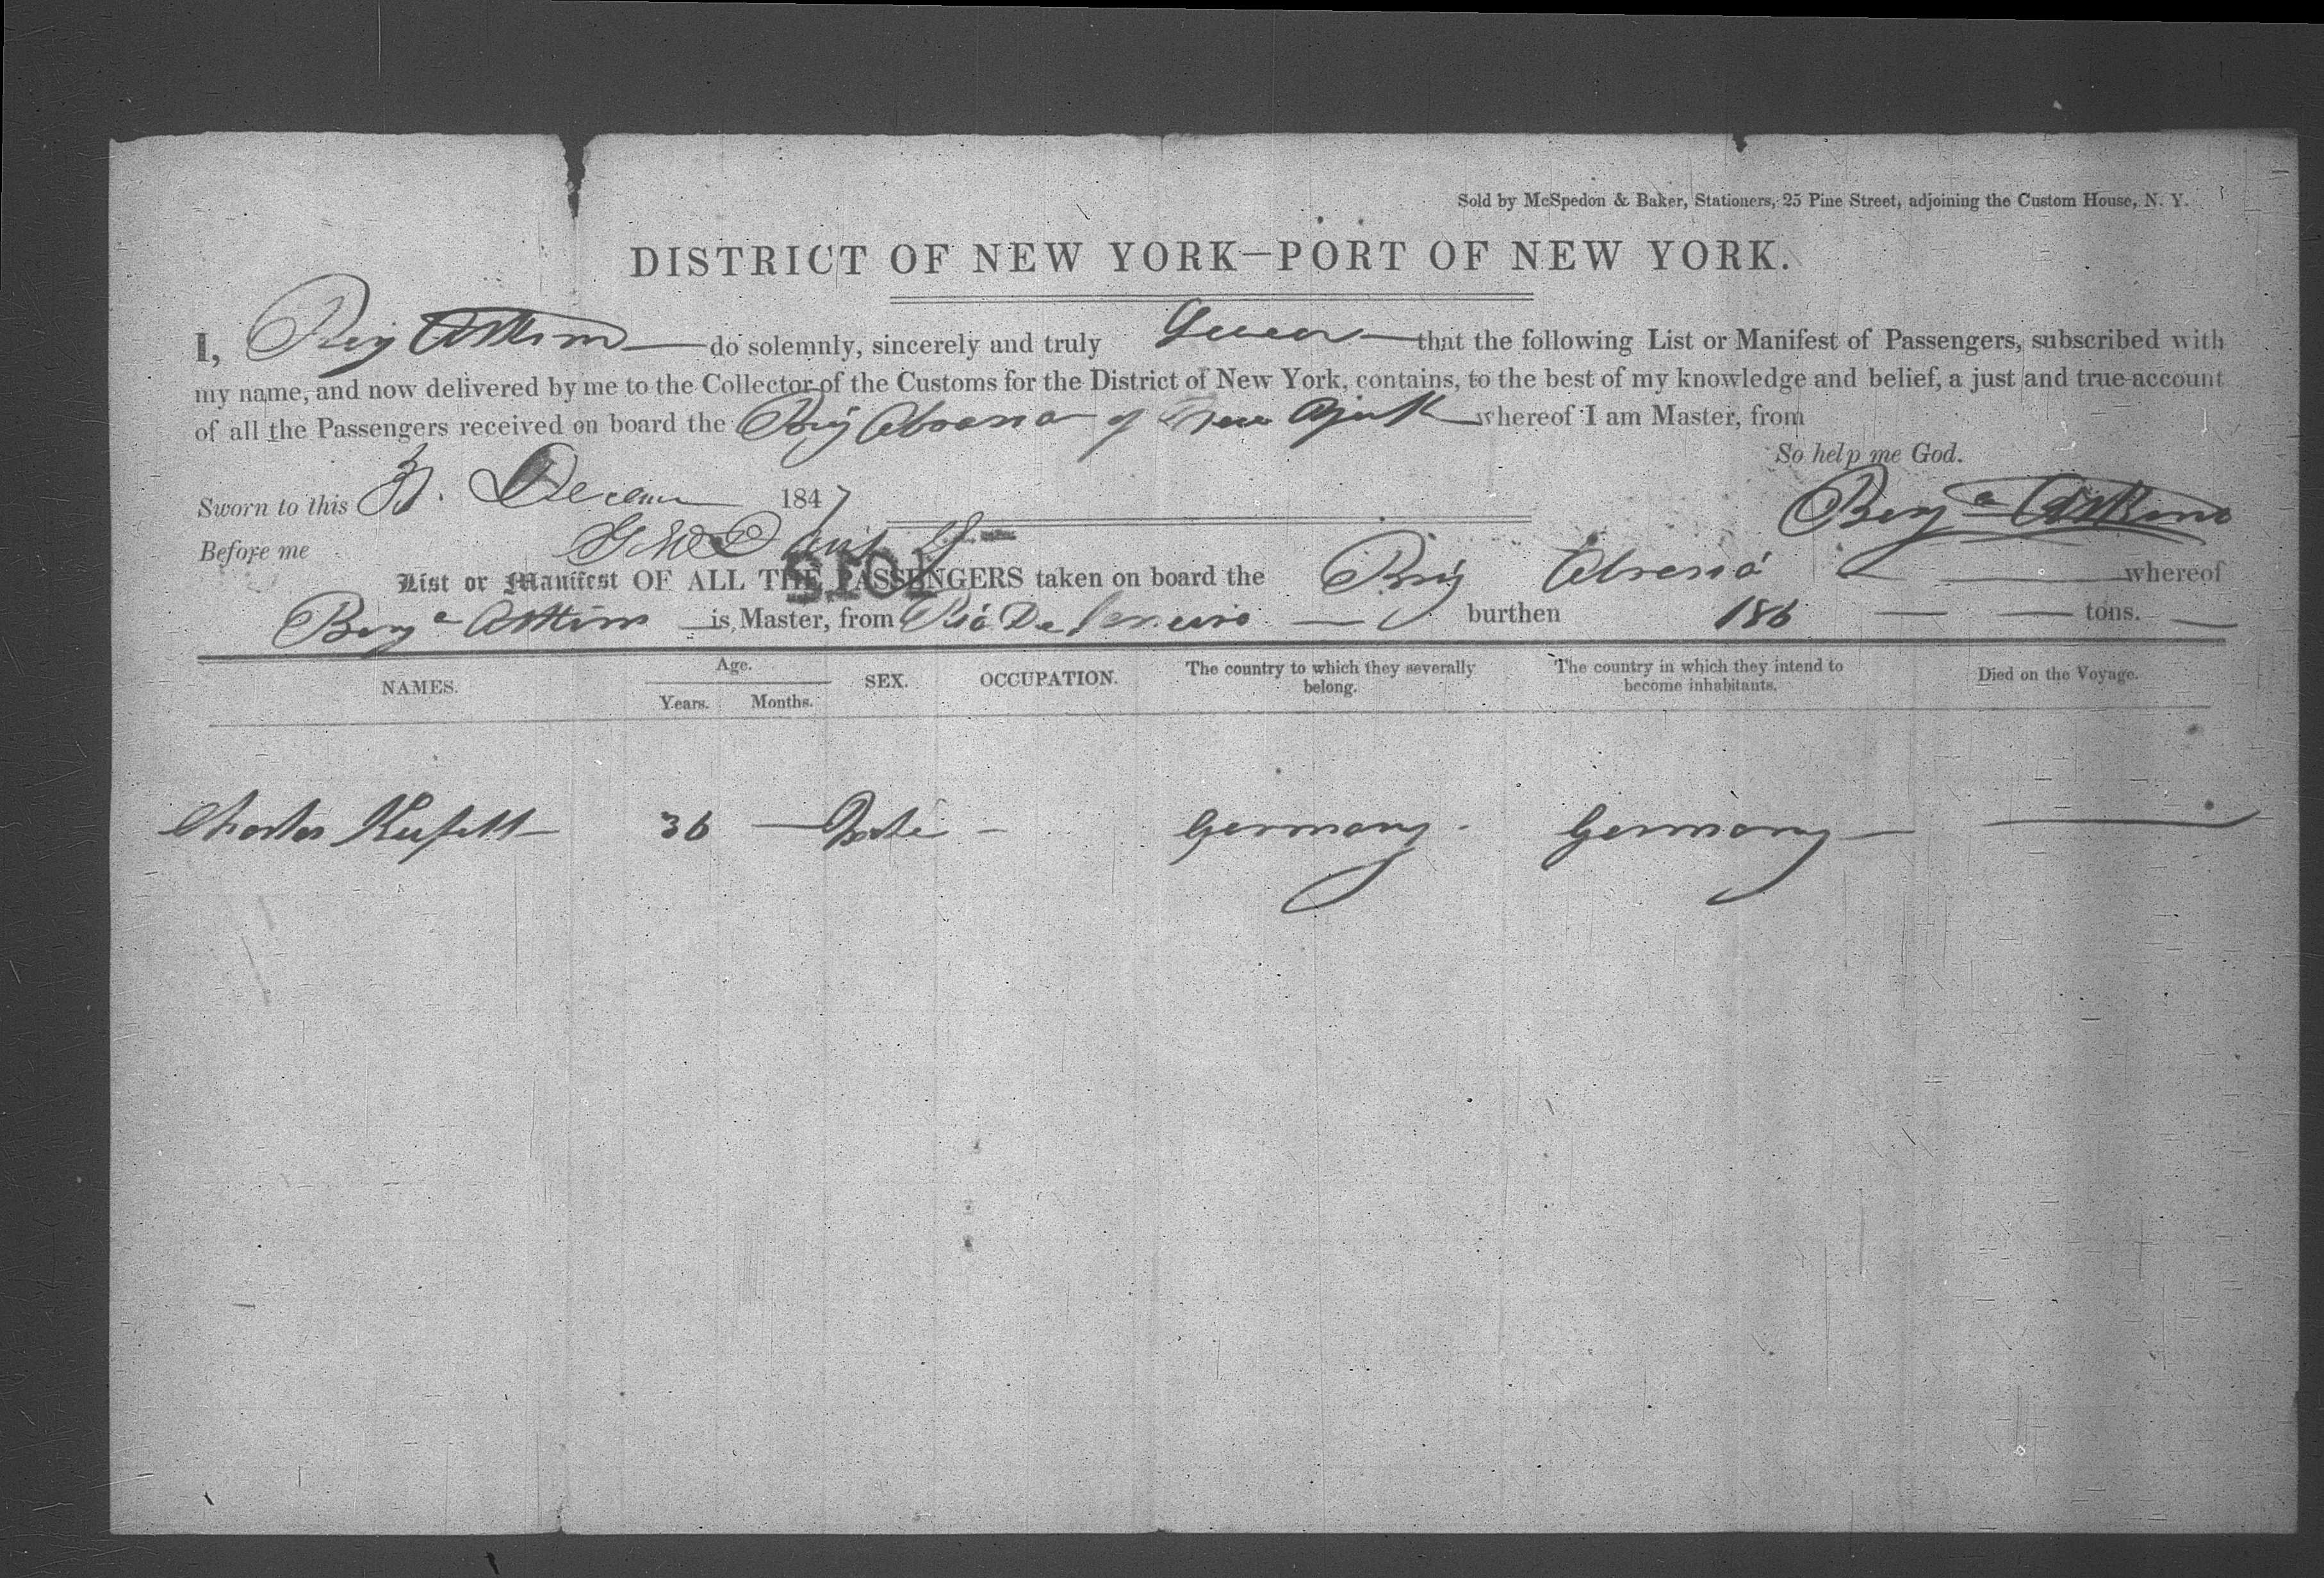 Sold by McSpedon & Baker, Stationers, 25 Pine Street, adjoining the Custom House, N. Y.
DISTRICT OF NEW YORK—PORT OF NEW YORK.
I, Benj Atkins do solemnly, sincerely and truly Swear that the following List or Manifest of Passengers, subscribed with
my name, and now delivered by me to the Collector of the Customs for the District of New York, contains, to the best of my knowledge and belief, a just and true account
of all the Passengers received on board the Brig of New York whereof I am Master, from
So help me God.
Sworn to this Decem 1847
Benja Atkins
Before me
List or Manifest OF ALL THE PASSENGERS taken on board the Brig whereof
Benja Atkins is Master, from Rio De Janeiro burthen 186 tons.
NAMES. Age. Years. Months. SEX. OCCUPATION. The country to which they severally belong. The country in which they intend to become inhabitants. Died on the Voyage.
Charles 36 Germany Germany